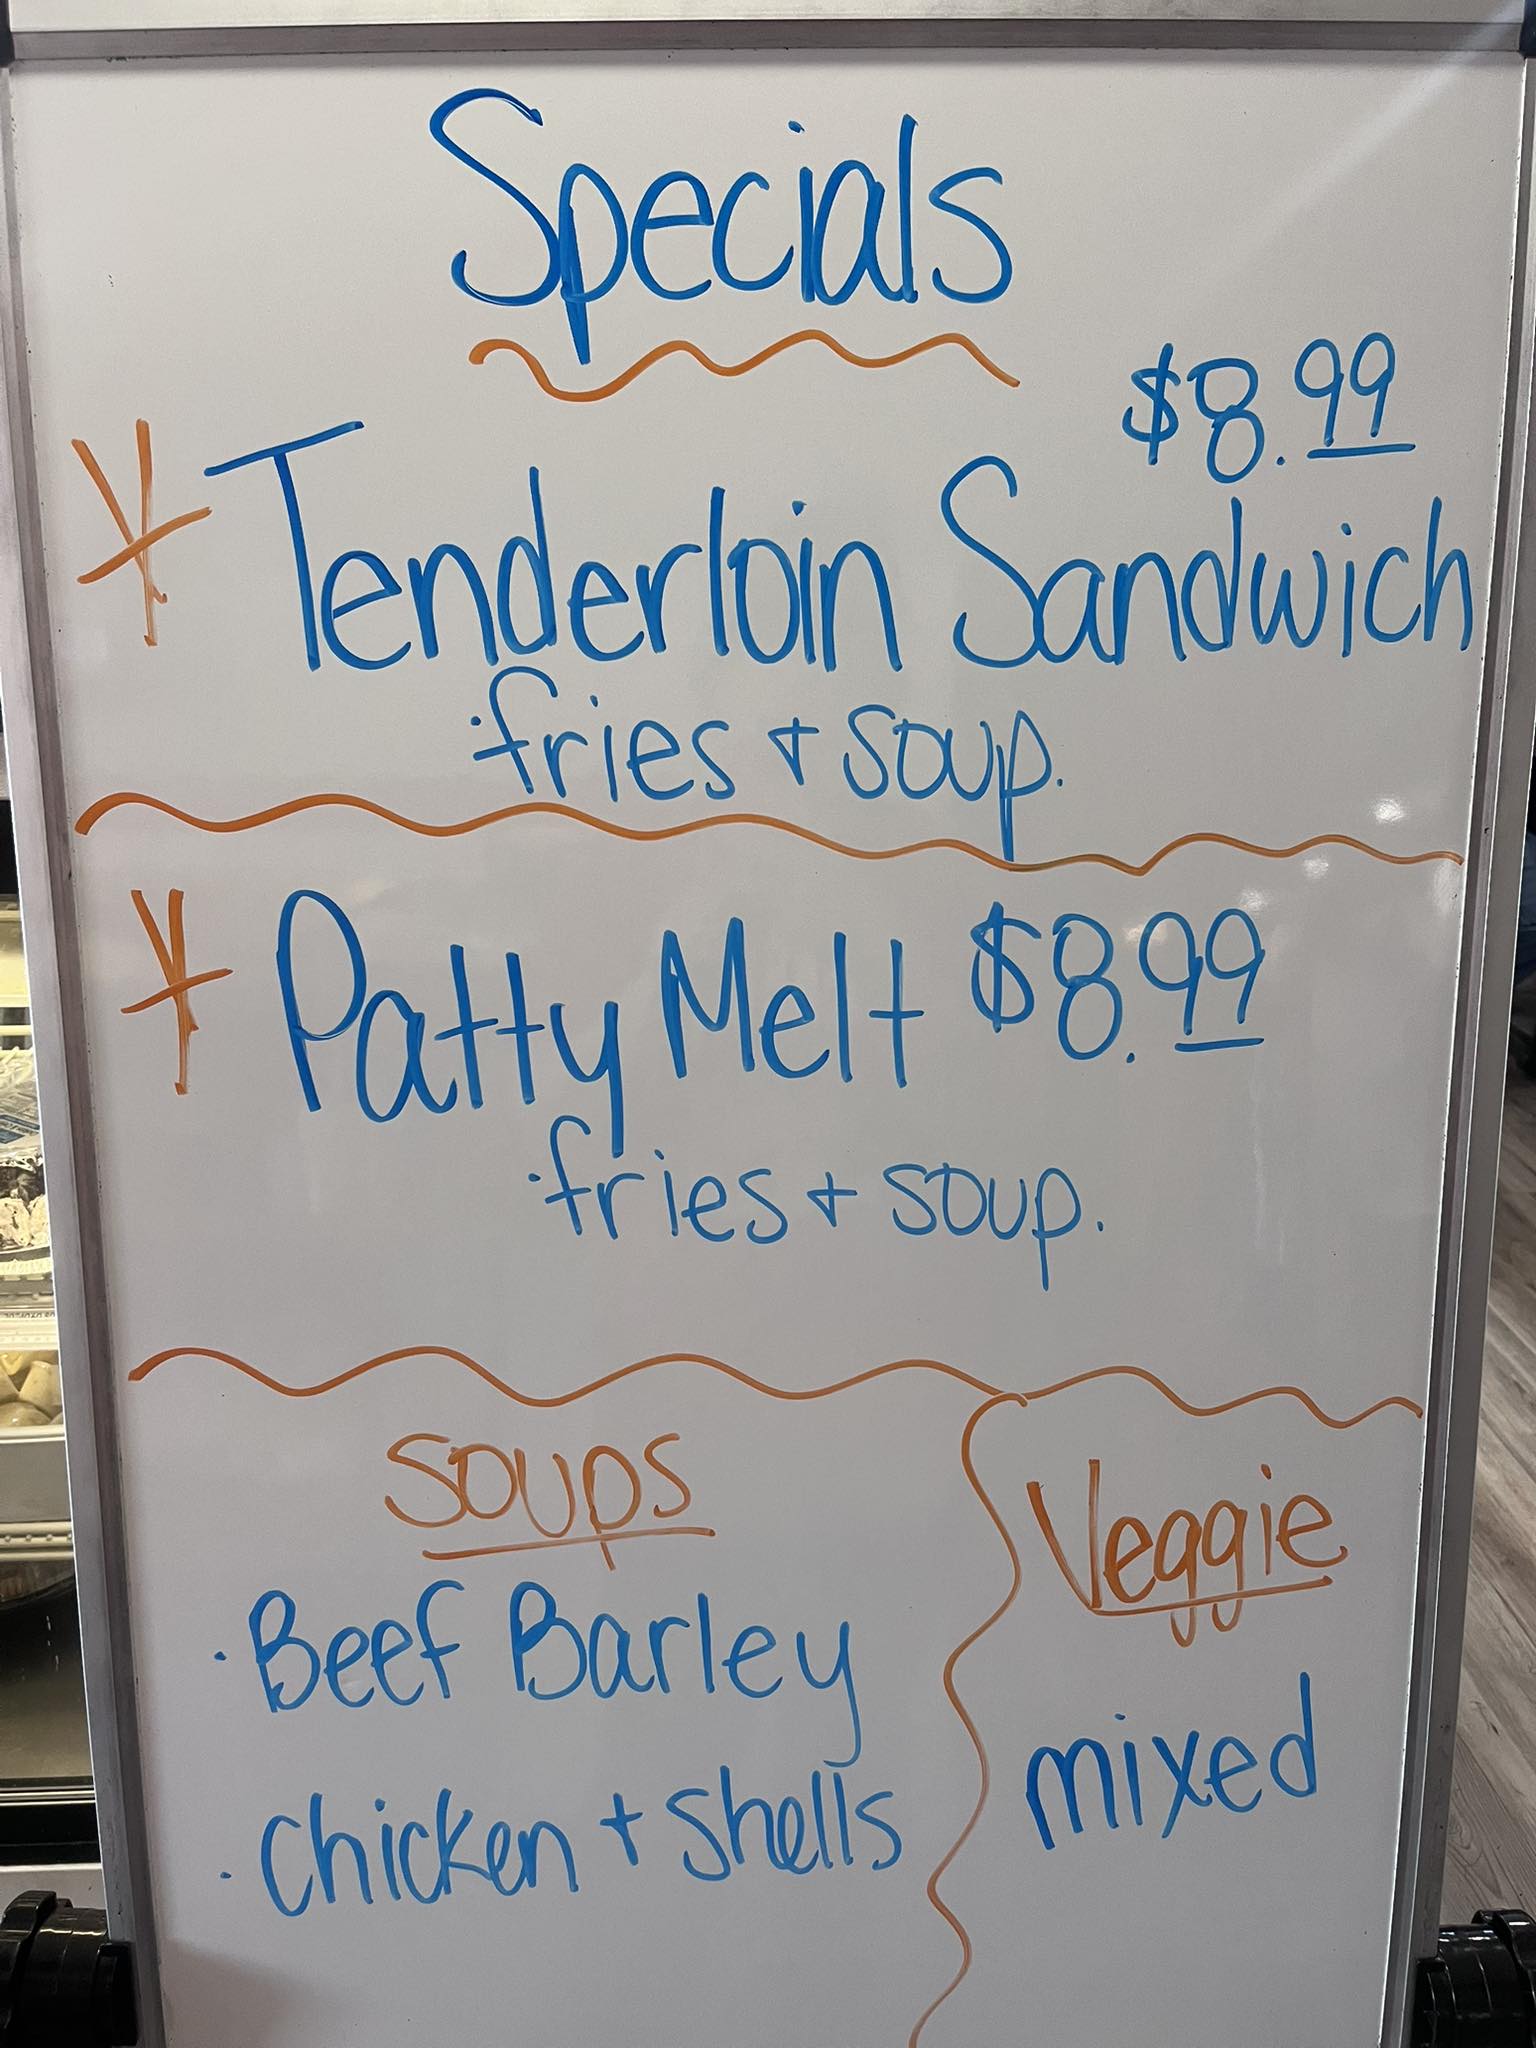 Specials
$8.99
Tenderloin Sandwich
·fries + soup.
Patty Melt $8.99
·fries + soup.
Soups
· Beef Barley
· Chicken + Shells
Veggie
mixed